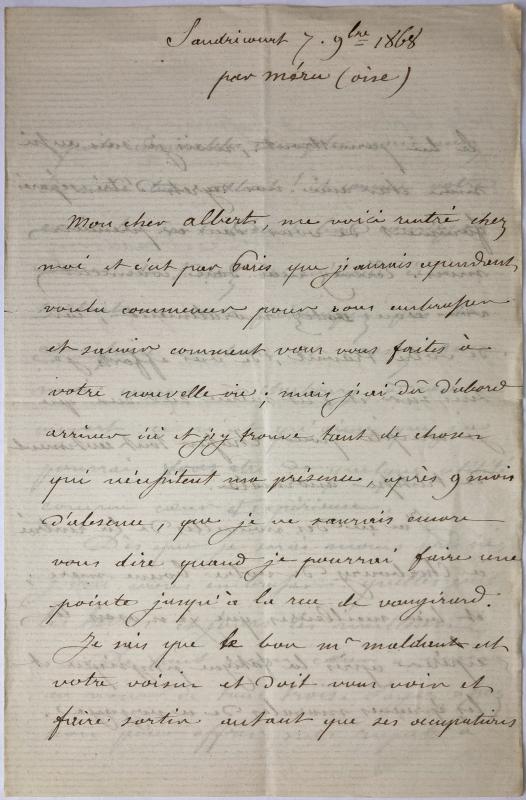 Sandricourt 7. 9bre 1868
par Méru (oise)
Mon cher albert, me voici rentré chez
moi et c'est par Paris que j'aurais cependant
voulu commencer pour vous embrasser
et savoir comment vous vous faites à
votre nouvelle vie ; mais j'ai dû d'abord
arriver ici et j'y trouve tant de choses
qui nécessitent ma présence, après 9 mois
d'absence, que je ne saurais encore
vous dire quand je pourrai faire une
pointe jusqu'à la rue de vaugirard.
Je sais que le bon mr maldent est
votre voisin et doit vous voir et
faire sortir autant que ses occupations